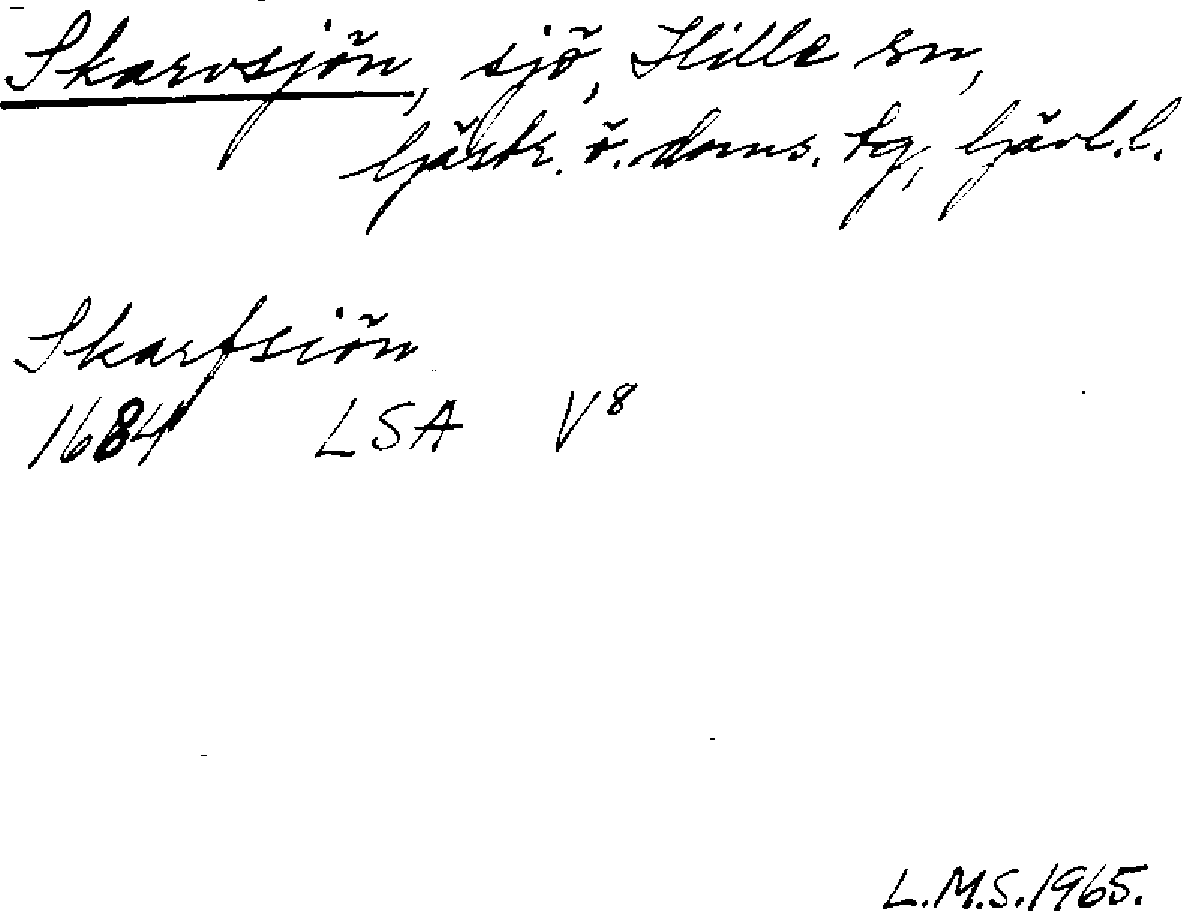 Skarvsjön, sjö, Hille sn,
Gästr. ö. doms. tg, Gävl.l.
Skarfsiön
1684 LSA V8
L.M.S.1965.